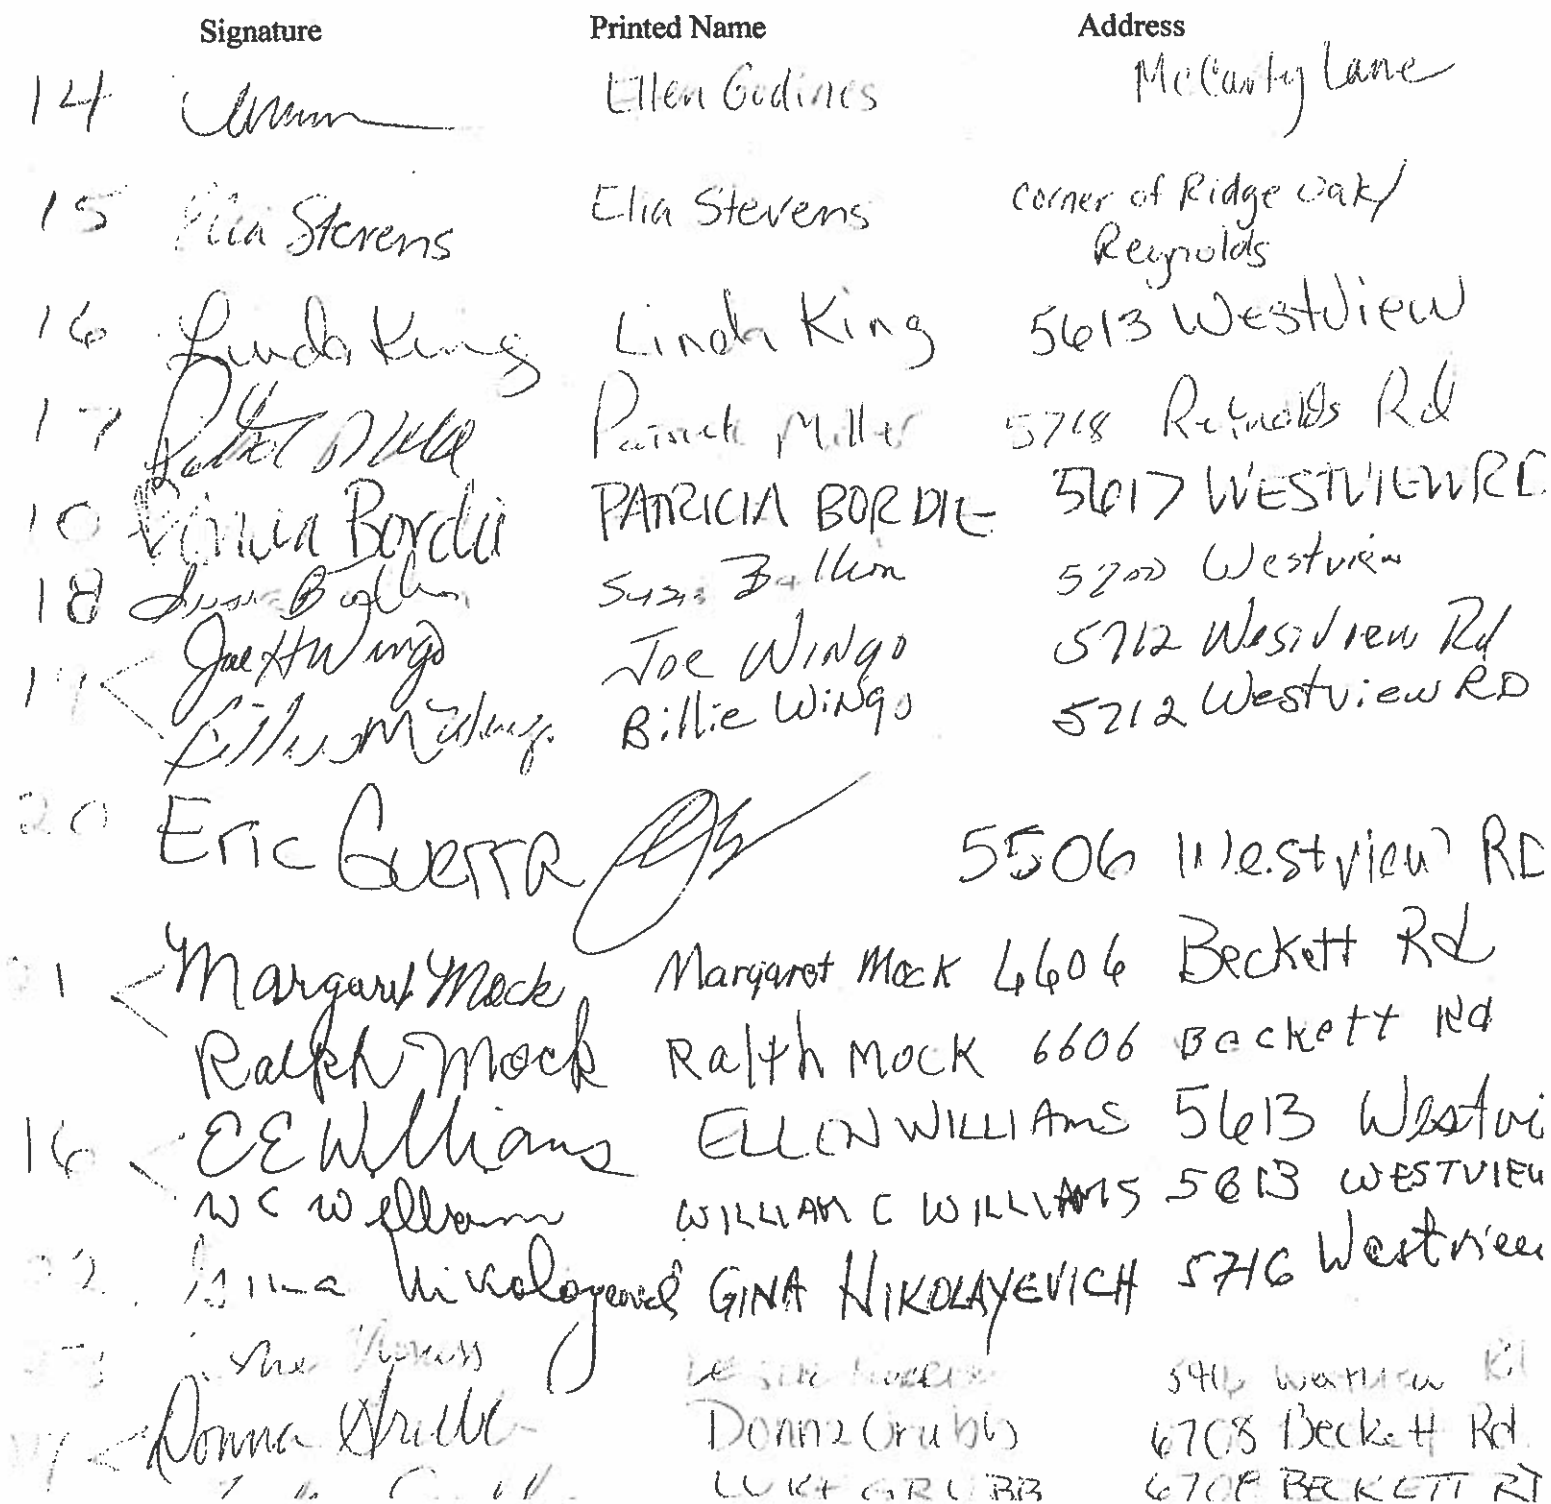 Signature Printed Name Address
14 Ellen Godines McCarty Lane
15 Elia Stevens Elia Stevens corner of Ridge Oak/
Reynolds
16 Linda King Linda King 5613 Westview
17 Patrick Miller 5718 Reynolds Rd
Patricia Bordie PATRICIA BORDIE 5617 WESTVIEW RD
18 5700 Westview
19 Joe H Wingo Joe Wingo 5712 Westview Rd
Billie Wingo 5712 Westview RD
20 Eric Guerra 5506 Westview RD
21 Margaret Mock Margaret Mock 6606 Beckett Rd
Ralph Mock Ralth Mock 6606 Beckett Rd
16 EE Williams ELLEN WILLIAMS 5613 Westvi
W C William WILLIAM C WILLIAMS 5613 WESTVIEW
22 Gina Nikolayevich GINA NIKOLAYEVICH 5716 Westview
23
Donna Grubb Donna Grubb 6708 Beckett Rd
LUKE GRUBB 6708 BECKETT RD